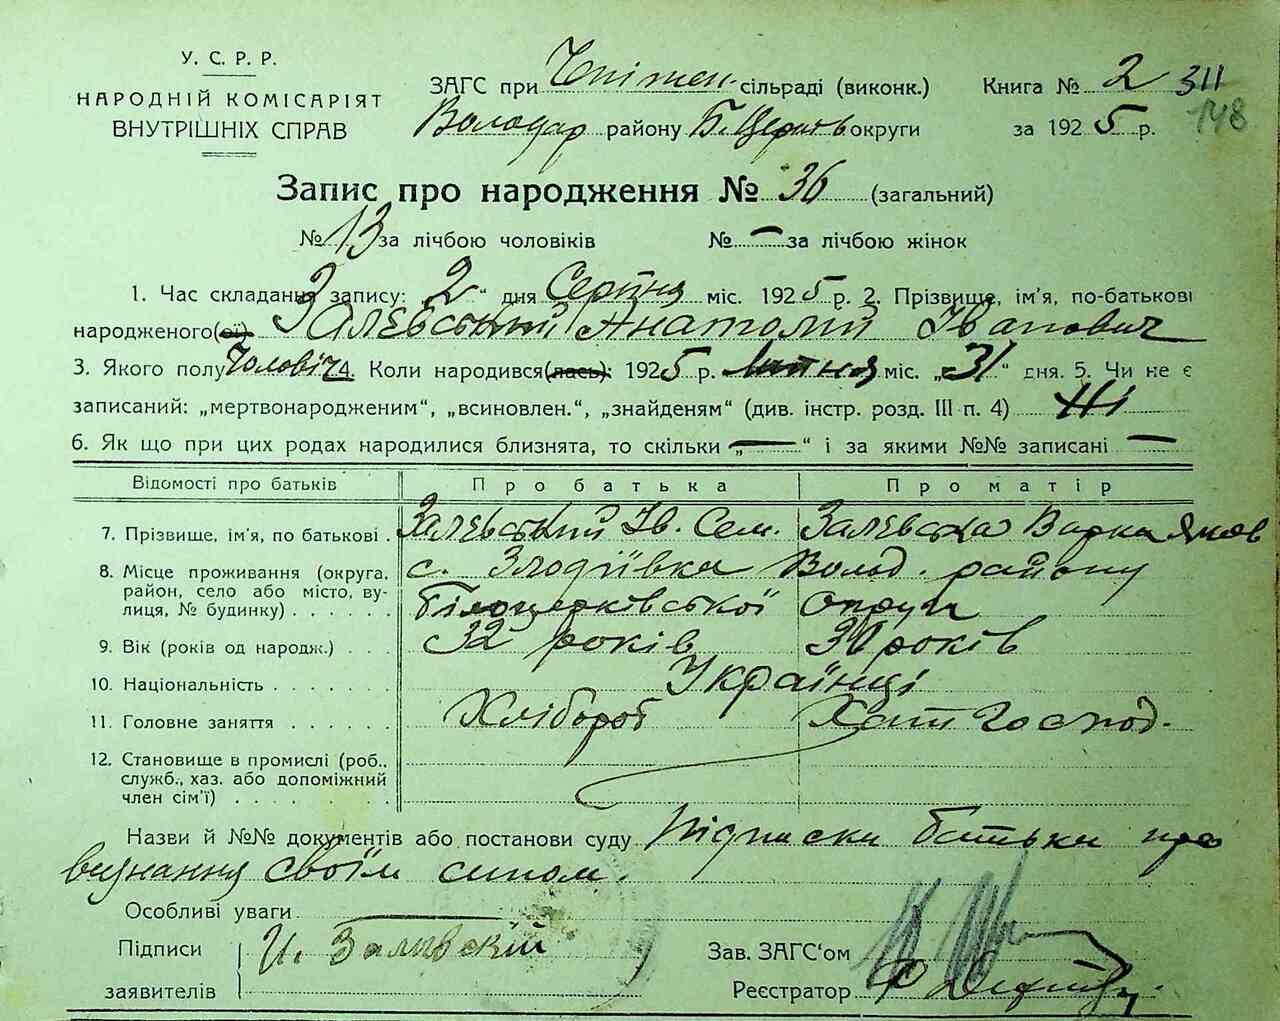 У. С. Р. Р.
НАРОДНІЙ КОМІСАРІЯТ
ВНУТРІШНІХ СПРАВ
ЗАГС при сільраді (виконк.)
Володар району Б. Церків округи
Книга № 2 311
за 1925 р. 148
Запис про народження № 36 (загальний)
№ 13 за лічбою чоловіків № — за лічбою жінок
1. Час складання запису: „2“ дня Серпня міс. 1925 р. 2. Прізвище, ім'я, по-батькові
народженого(ої) Залевський Анатолій Іванович
3. Якого полу Чоловіч 4. Коли народився(лась): 1925 р. Липня міс. „31“ дня. 5. Чи не є
записаний: „мертвонародженим“, „всиновлен.“, „знайденям“ (див. інстр. розд. III п. 4) Ні
6. Як що при цих родах народилися близнята, то скільки „—“ і за якими №№ записані —
Відомості про батьків Про батька Про матір
7. Прізвище, ім'я, по батькові . Залевський Ів. Сем. Залевська Варка Яков
8. Місце проживання (округа, район, село або місто, вулиця, № будинку) . . . . . . с. Злодіївка Волод. району
Білоцерківської Округи
9. Вік (років од народж.) . . . 32 років 30 років
10. Національність . . . . . . . Українці
11. Головне заняття . . . . . . Хлібороб Хатн Господ.
12. Становище в промислі (роб., служб., хаз. або допоміжний член сім'ї) . . . . . . .
Назви й №№ документів або постанови суду Підписки батька про
визнання своїм сином.
Особливі уваги —
Підписи заявителів И. Заливский
Зав. ЗАГС'ом
Реєстратор